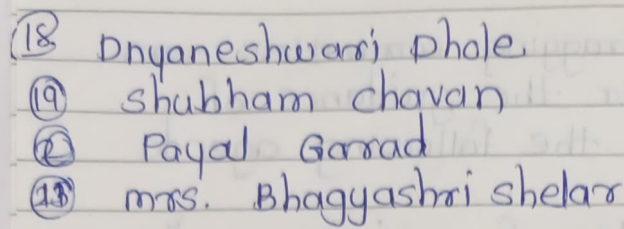 18 Dnyaneshwari Dhole.
19 Shubham Chavan
Payal Garad
mrs. Bhagyashri shelar